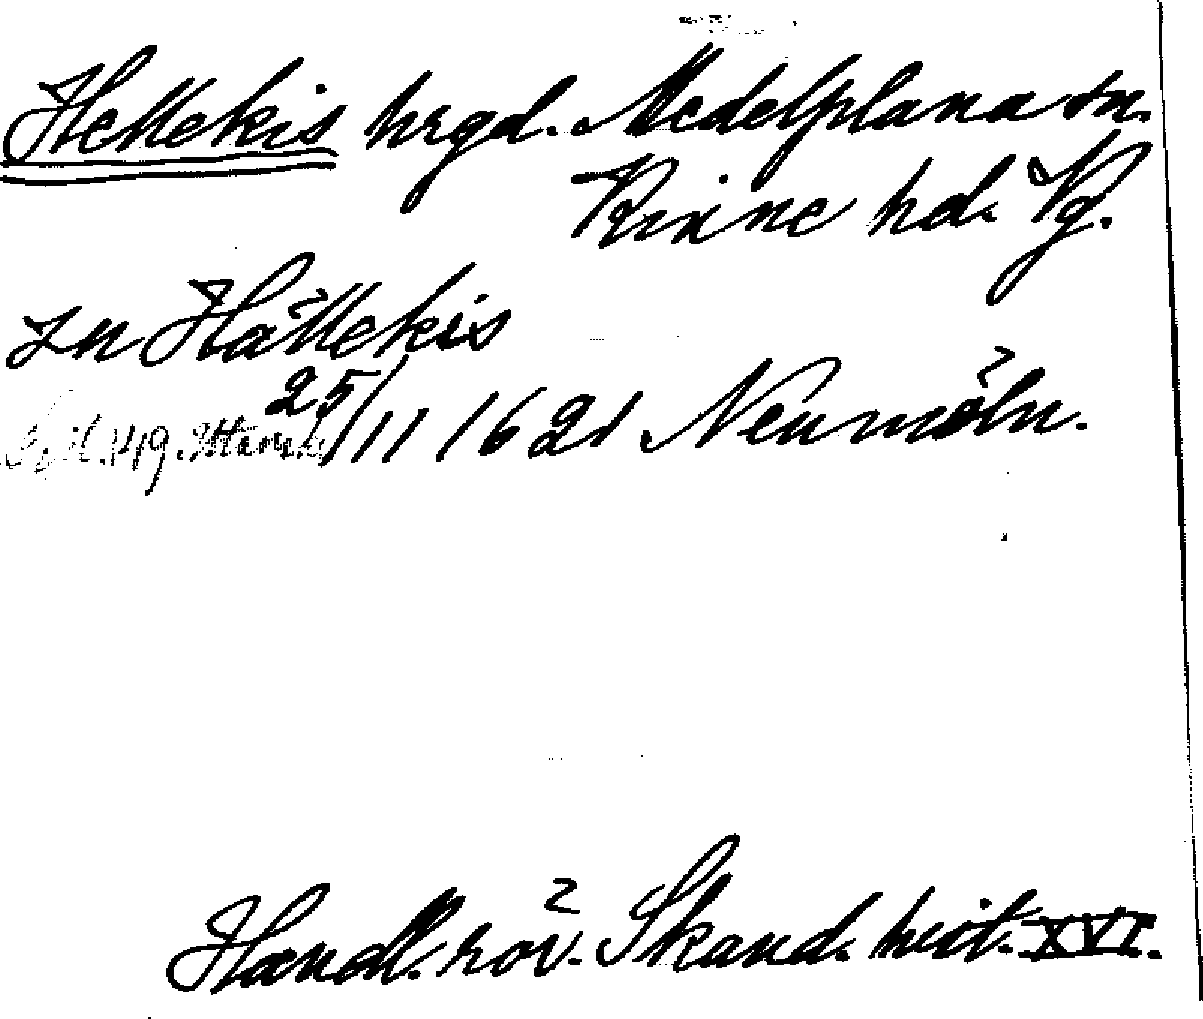 Hellekis hrgd. Medelplana sn.
Kinne hd. Vg.
zu Hällekis
25/11 1621 Neumöln.
Handl. röv. Skand. hist. XVI.